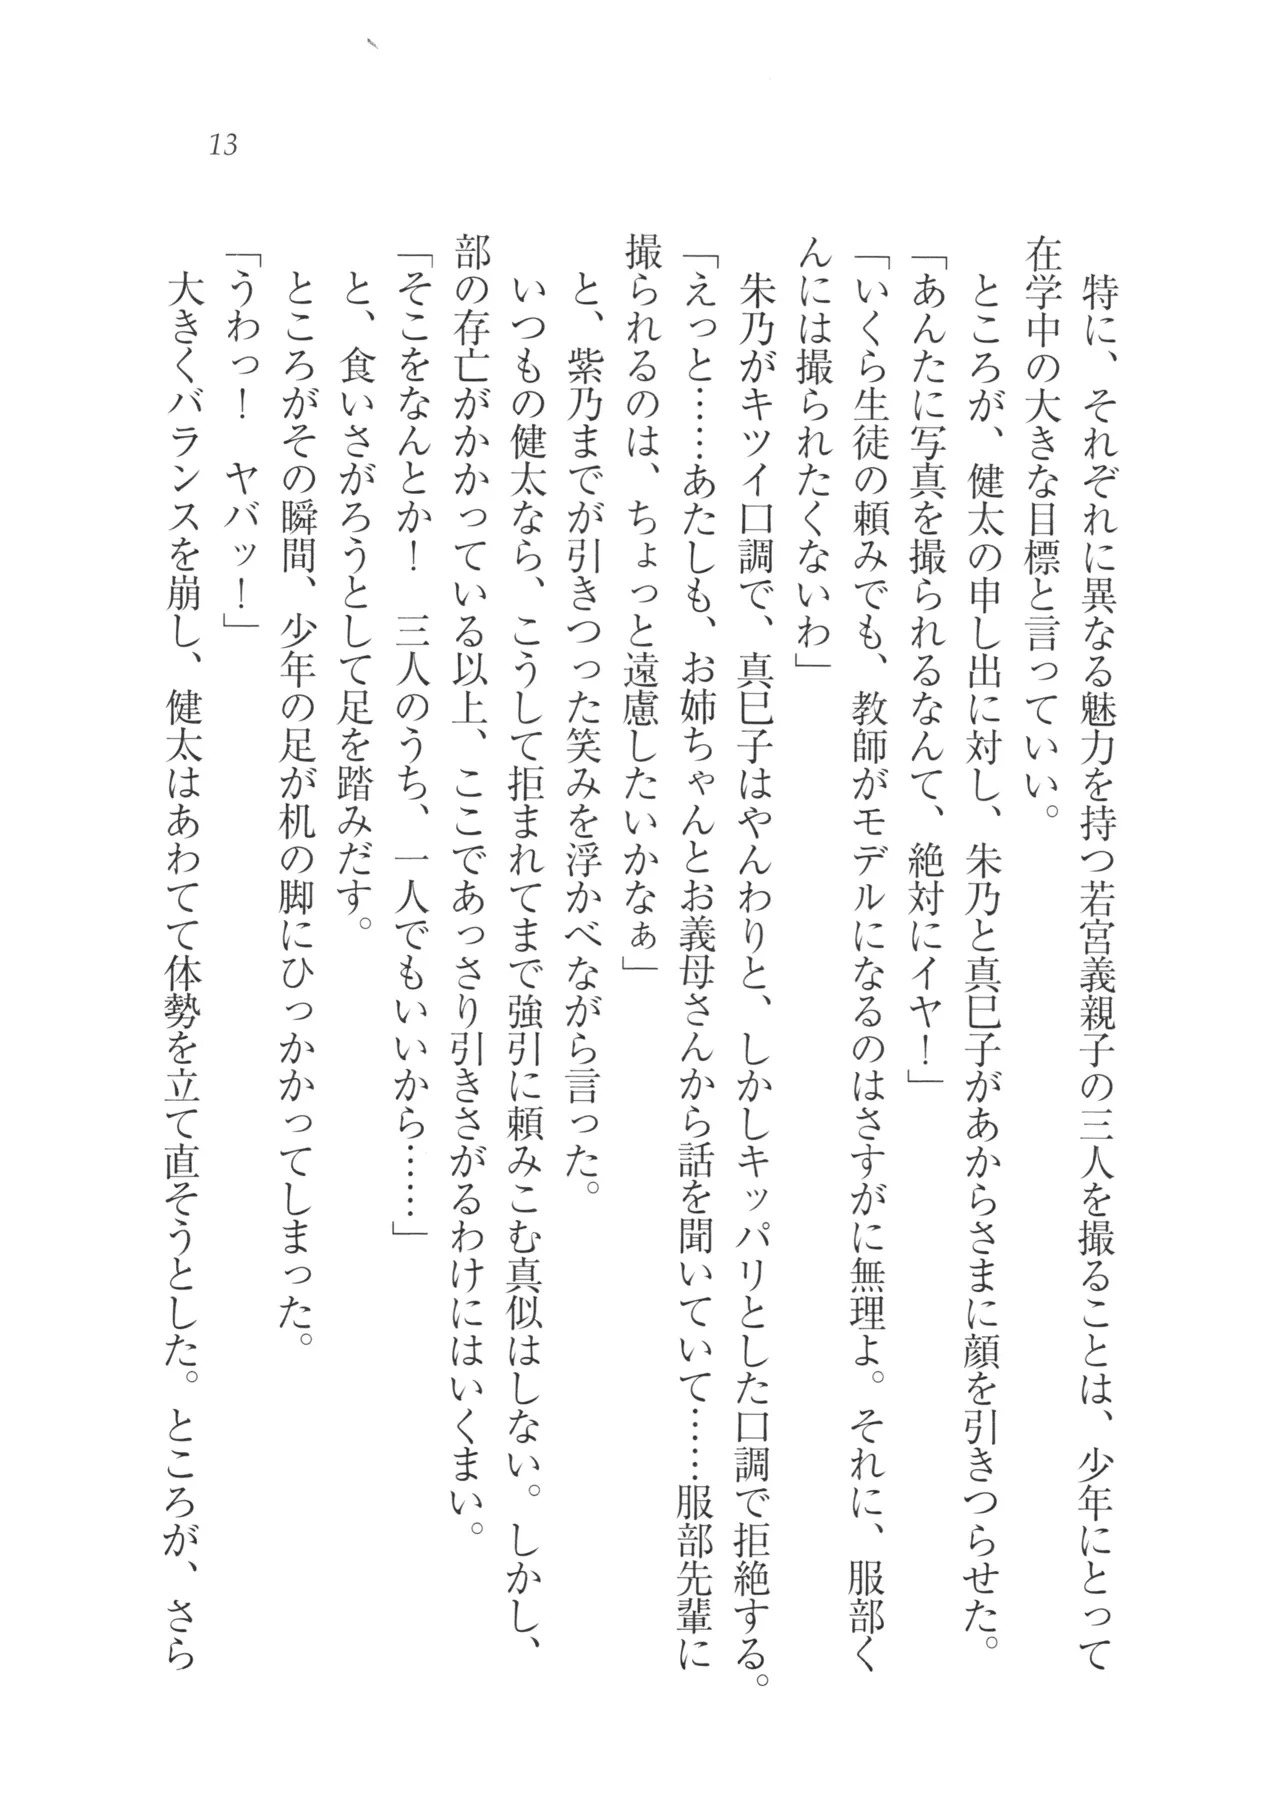 13
　特に、それぞれに異なる魅力を持つ若宮義親子の三人を撮ることは、少年にとって
在学中の大きな目標と言っていい。
　ところが、健太の申し出に対し、朱乃と真巳子があからさまに顔を引きつらせた。
「あんたに写真を撮られるなんて、絶対にイヤ！」
「いくら生徒の頼みでも、教師がモデルになるのはさすがに無理よ。それに、服部く
んには撮られたくないわ」
　朱乃がキツイ口調で、真巳子はやんわりと、しかしキッパリとした口調で拒絶する。
「えっと……あたしも、お姉ちゃんとお義母さんから話を聞いていて……服部先輩に
撮られるのは、ちょっと遠慮したいかなぁ」
　と、紫乃までが引きつった笑みを浮かべながら言った。
　いつもの健太なら、こうして拒まれてまで強引に頼みこむ真似はしない。しかし、
部の存亡がかかっている以上、ここであっさり引きさがるわけにはいくまい。
「そこをなんとか！　三人のうち、一人でもいいから……」
　と、食いさがろうとして足を踏みだす。
　ところがその瞬間、少年の足が机の脚にひっかかってしまった。
「うわっ！　ヤバッ！」
　大きくバランスを崩し、健太はあわてて体勢を立て直そうとした。ところが、さら